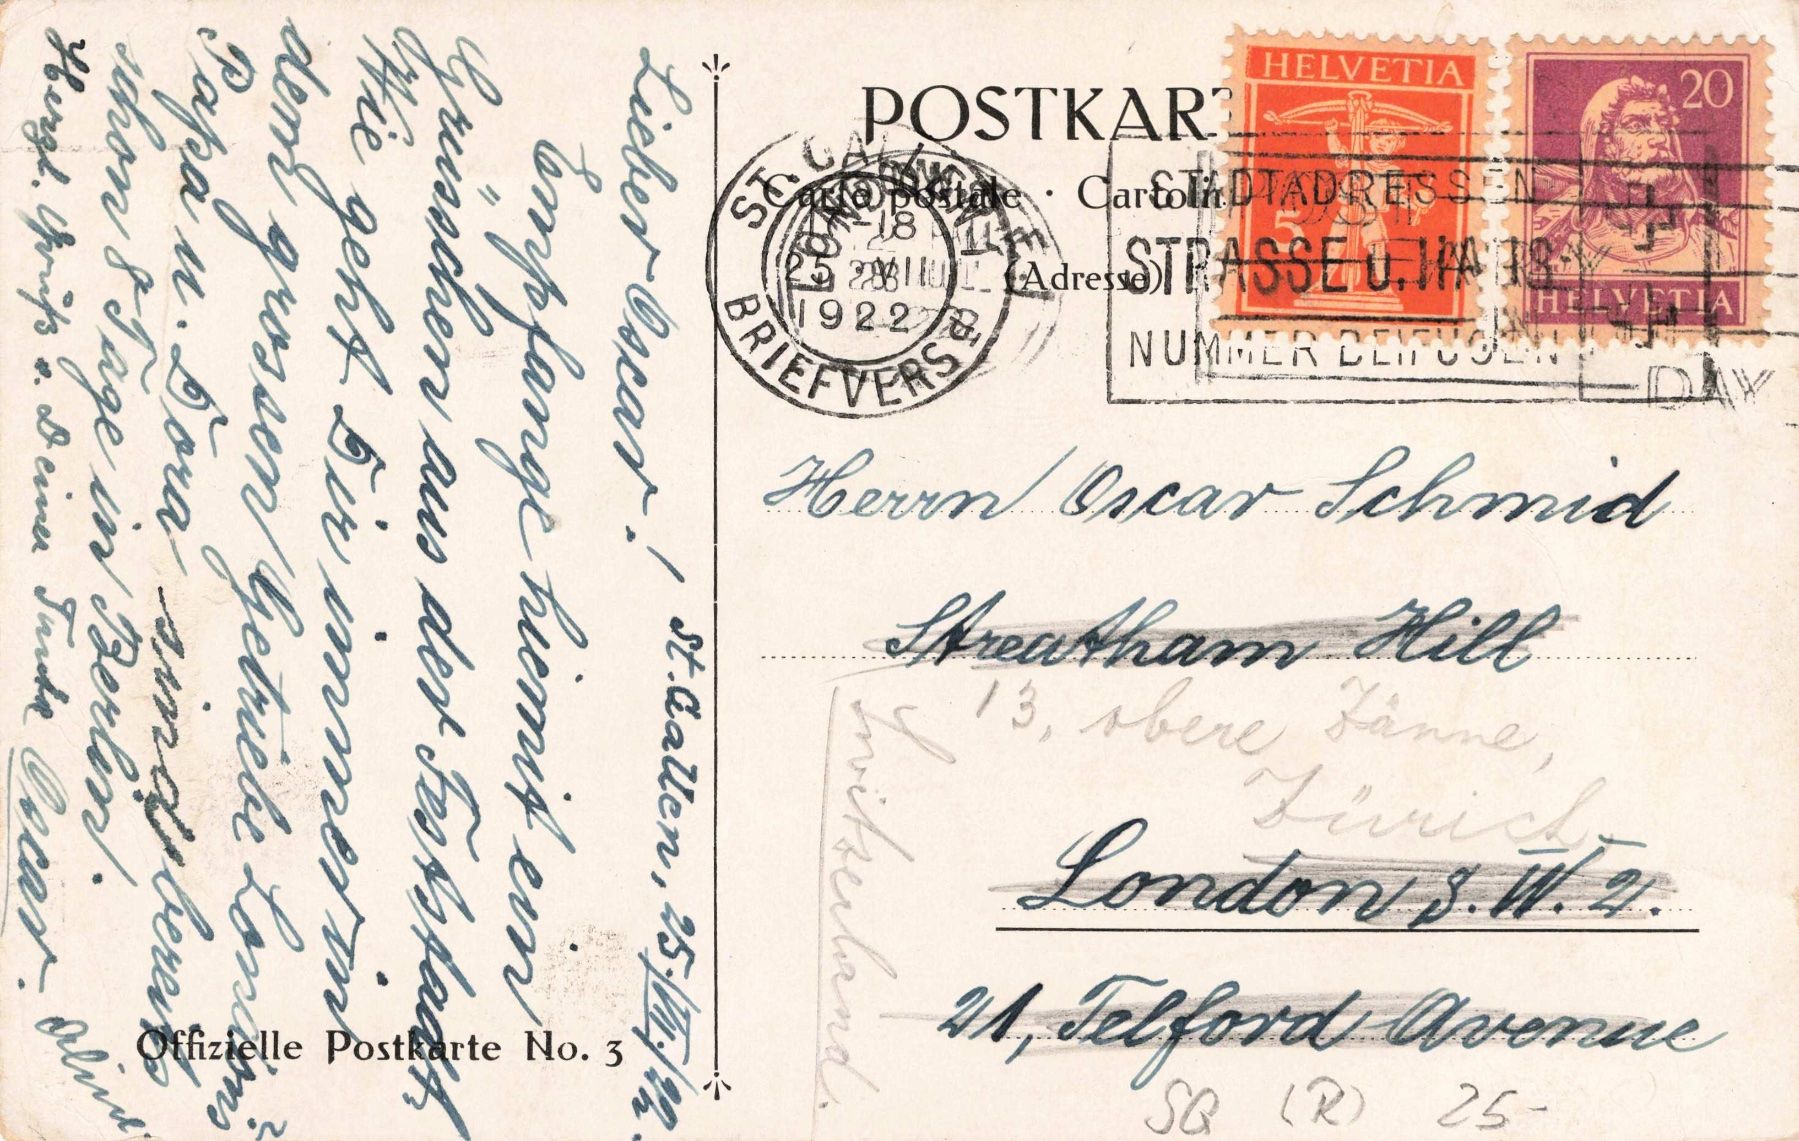 POSTKAR
Carte postale · Cartolin
(Adresse)
HELVETIA
5
20
HELVETIA
ST. GALLEN
17-18
25. VIII
1922
BRIEFVERS
STADTADRESSEN
STRASSE U. HAUS-
NUMMER BEIFÜGEN
DAY
St. Gallen, 25./VIII./22.
Lieber Oscar!
Empfange hiemit ein
Grüsschen aus der Feststadt.
Wie geht Dir immer in
dem grossen Getriebe Londons?
Papa u. Dora sind bereits
schon 8 Tage in Berlin.
Herzl. Grüße v. Deiner Tante
Oscar.
Herrn Oscar Schmid
Streatham Hill
13, obere Zäune,
Zürich.
London S.W. 2.
21, Telford Avenue
Switzerland.
SG (R) 25-
Offizielle Postkarte No. 3